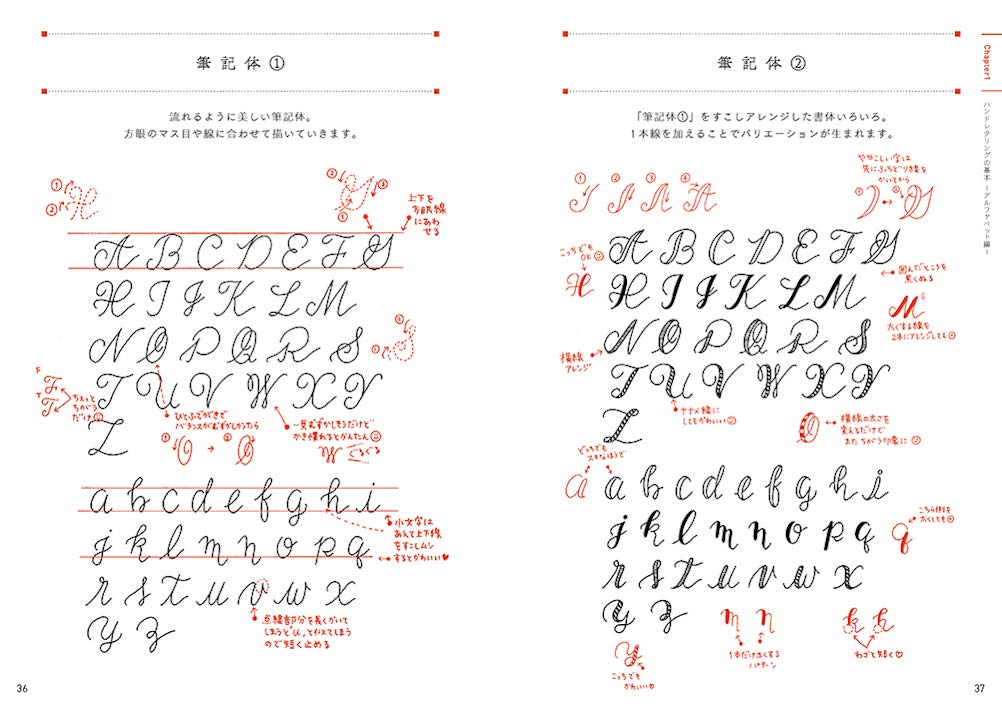 筆記体①
流れるように美しい筆記体。
方眼のマス目や線に合わせて描いていきます。
① ②
② ③ ①
上下を
方眼線
にあわ
せる
A B C D E F G
H I J K L M
N O P Q R S
① ②
T U V W X Y
F
T
ちょっと
ちがう
だけ
Z
ひとふでがきで
バランスがむずかしかったら
① → ②
一見むずかしそうだけど
かき慣れるとかんたん
W ぐるぐる
a b c d e f g h i
小文字は
あえて上下線
をすこしムシ
するとかわいい♥
j k l m n o p q
r s t u v w x
点線部分を長くかいて
しまうと"u"とイメてしまう
ので短く止める
y z
36
筆記体②
「筆記体①」をすこしアレンジした書体いろいろ。
1本線を加えることでバリエーションが生まれます。
Chapter1
ハンドレタリングの基本 ーアルファベット編ー
① ② ③ ④
ややこしい字は
先にふちどり線を
かいてから
① → ②
こっちでも
OK
H
A B C D E F G
囲んだところを
黒くぬる
H I J K L M
M
太くする線を
2本にアレンジしても
横線
アレンジ
N O P Q R S
T U V W X Y
ナナメ線に
してもかわいい
Z
O
横線の太さを
変えるだけで
またちがう印象に
どっちでも
スキなほうで
a
a b c d e f g h i
j k l m n o p q
q
こちら側を
太くしても
r s t u v w x
y z
m n
1本だけ太くする
パターン
k k
わざと短く♡
y
こっちでも
かわいい
37